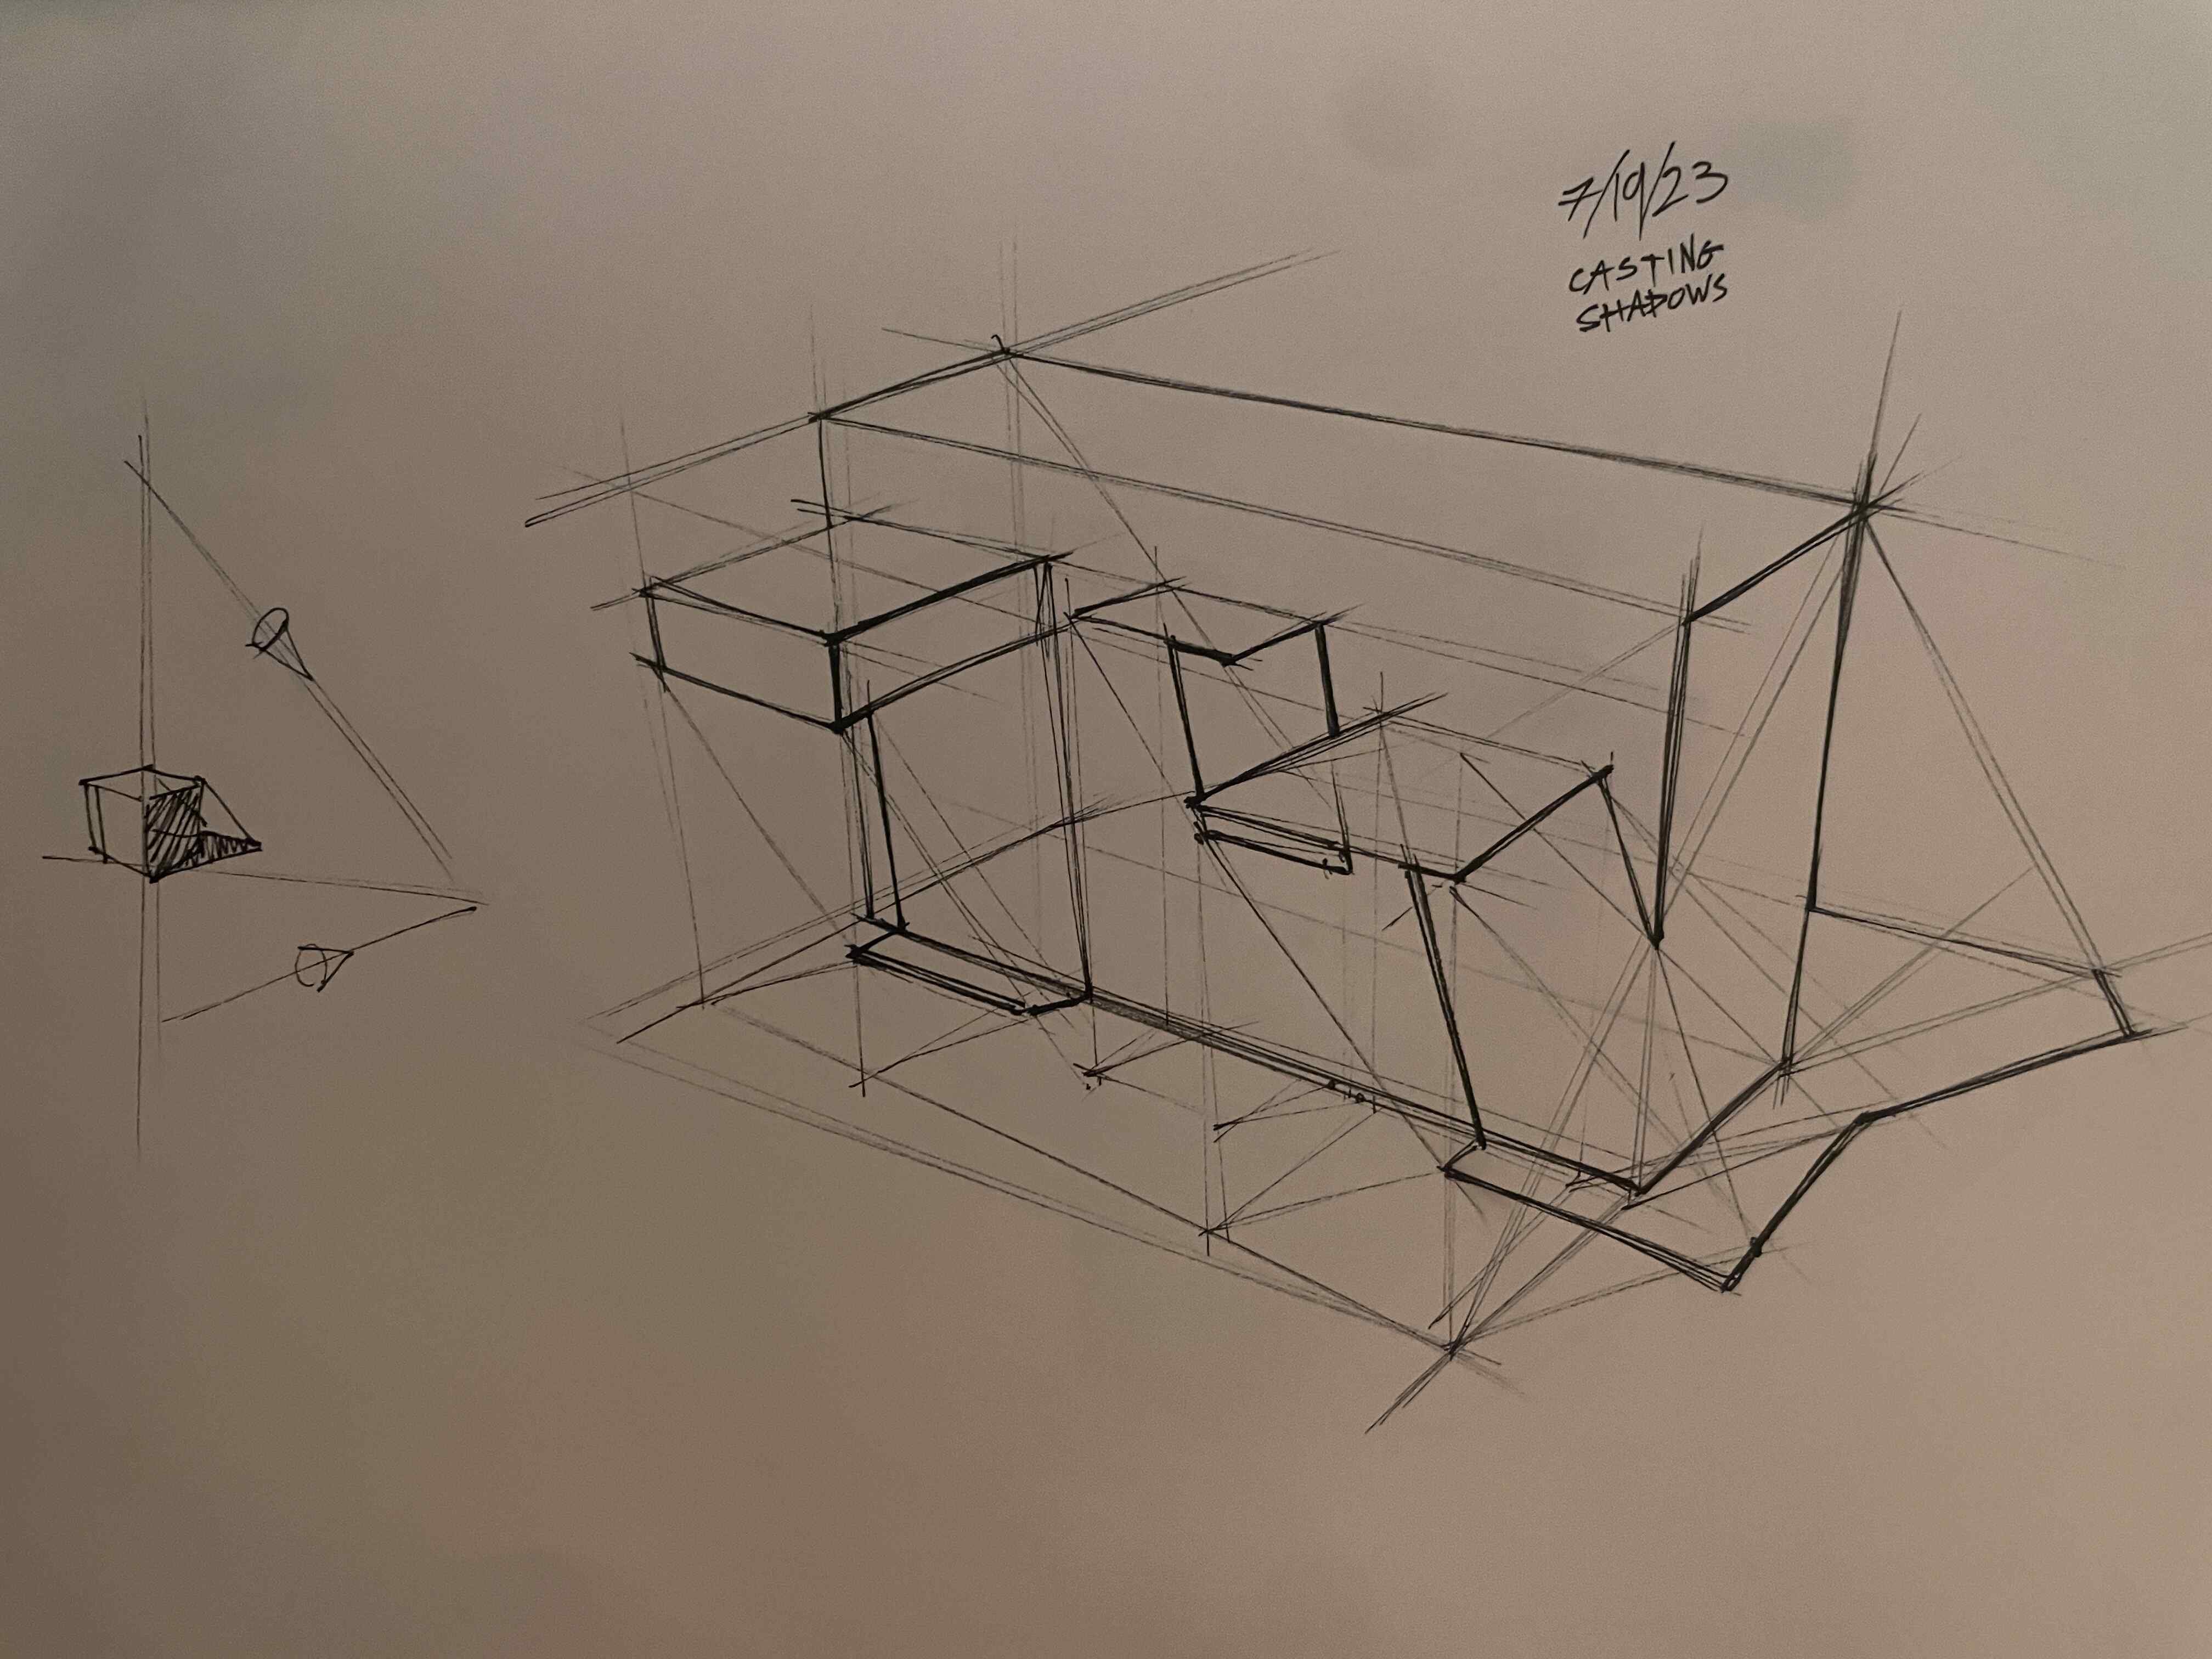 7/19/23
CASTING
SHADOWS